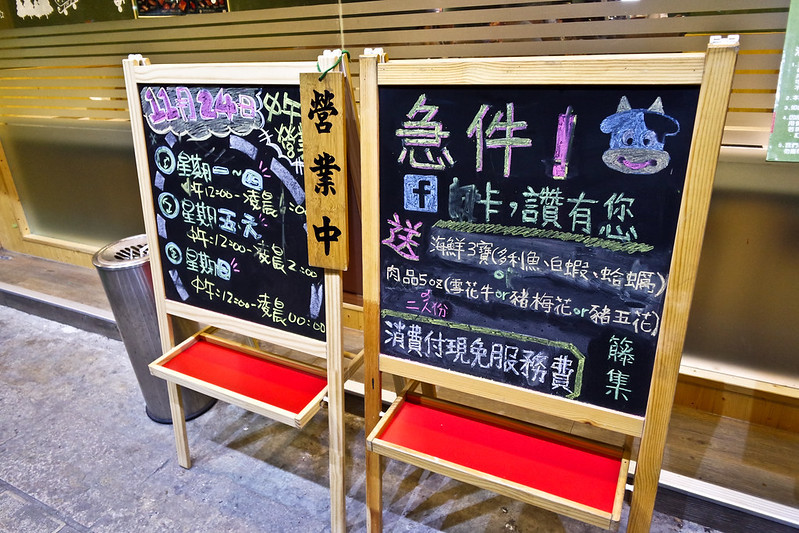 11月24日
中午
營業
① 星期一~四
中午12:00-凌晨1:00
② 星期五六
中午12:00-凌晨2:00
③ 星期日
中午12:00-凌晨00:00
營業中
急件!
f 打卡,讚有您
送 海鮮3寶(多利魚、白蝦、蛤蠣)
or
肉品5oz(雪花牛or豬梅花or豬五花)
二人份
消費付現免服務費
籐集